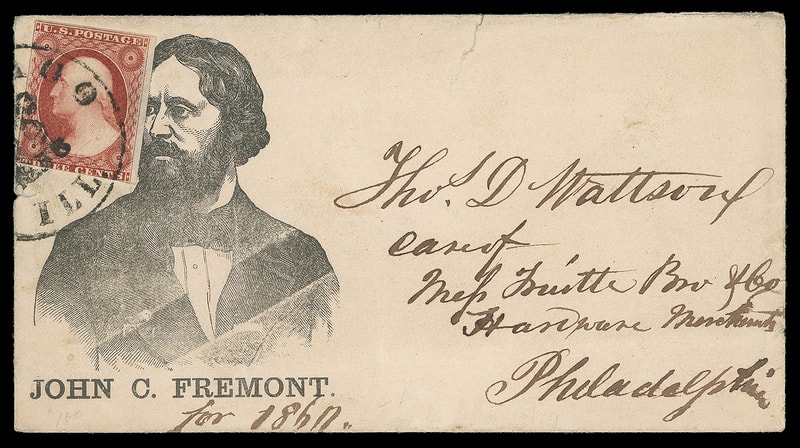 U.S. POSTAGE
THREE CENTS
AGO
ILL
JOHN C. FREMONT.
for 1860.
Thos. D Wattson
care of
Mess Bro & Co
Hardware Merchants
Philadelphia